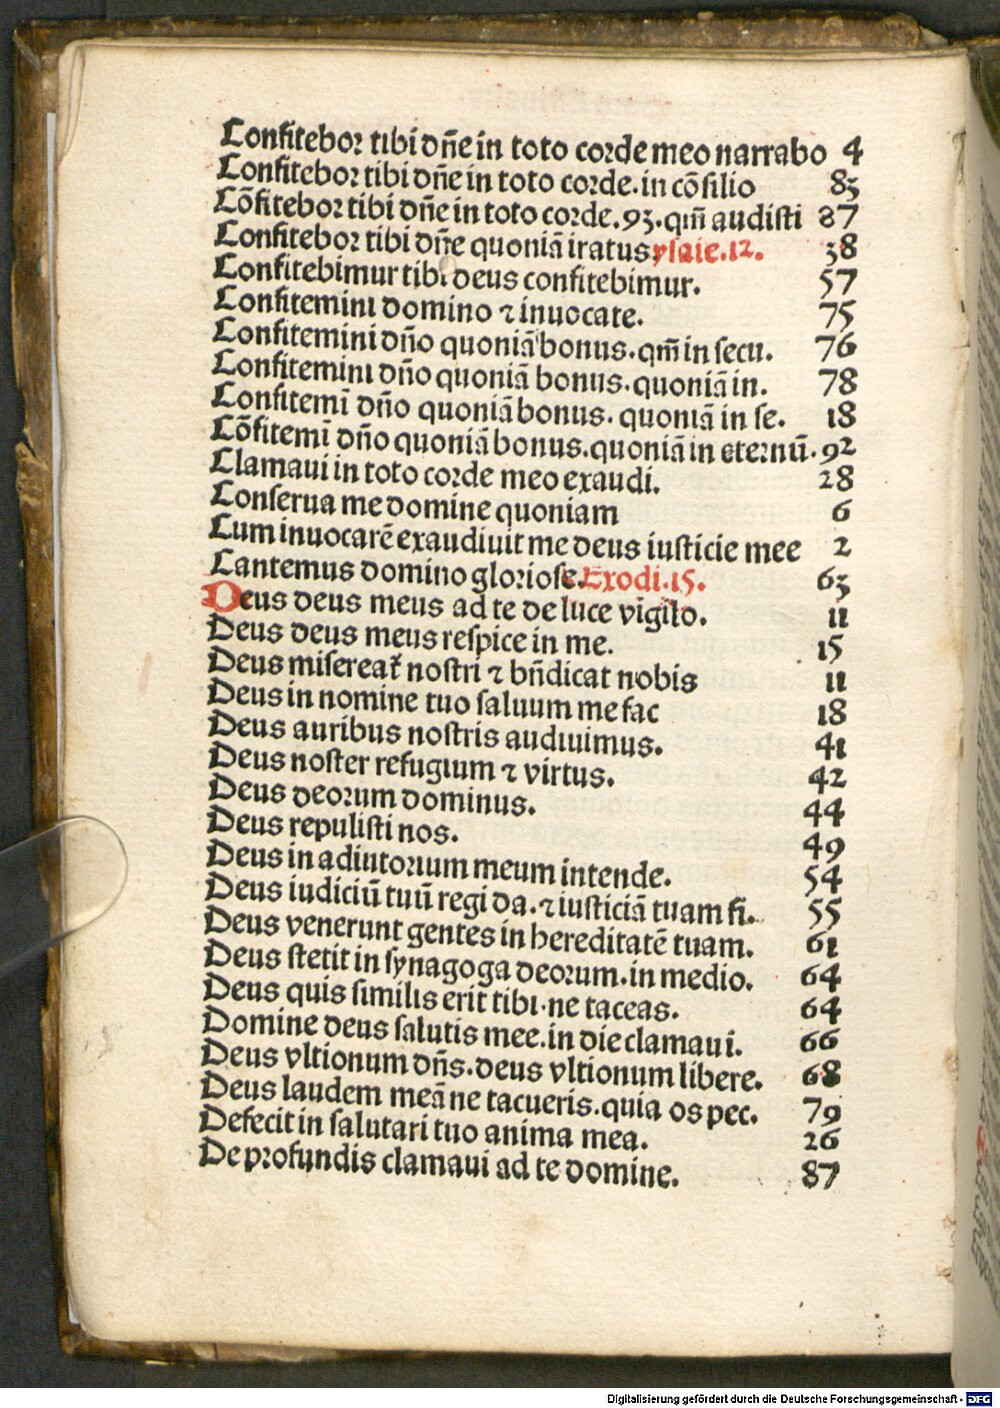 Confitebor tibi dñe in toto corde meo narrabo 4
Confitebor tibi dñe in toto corde. in cõsilio 83
Cõfitebor tibi dñe in toto corde. 93. qm̃ audisti 87
Confitebor tibi dñe quoniã iratus ysaie. 12. 38
Confitebimur tibi deus confitebimur. 57
Confitemini domino ⁊ inuocate. 75
Confitemini dño quoniã bonus. qm̃ in secu. 76
Confitemini dño quoniã bonus. quoniã in. 78
Confitemĩ dño quoniã bonus. quoniã in se. 18
Cõfitemĩ dño quoniã bonus. quoniã in eternũ. 92
Clamaui in toto corde meo exaudi. 28
Conserua me domine quoniam 6
Cum inuocarẽ exaudiuit me deus iusticie mee 2
Cantemus domino gloriose. Exodi. 15. 63
Deus deus meus ad te de luce vigilo. 11
Deus deus meus respice in me. 15
Deus misereat᷑ nostri ⁊ bñdicat nobis 11
Deus in nomine tuo saluum me fac 18
Deus auribus nostris audiuimus. 41
Deus noster refugium ⁊ virtus. 42
Deus deorum dominus. 44
Deus repulisti nos. 49
Deus in adiutorium meum intende. 54
Deus iudiciũ tuũ regi da. ⁊ iusticiã tuam fi. 55
Deus venerunt gentes in hereditatẽ tuam. 61
Deus stetit in synagoga deorum. in medio. 64
Deus quis similis erit tibi. ne taceas. 64
Domine deus salutis mee. in die clamaui. 66
Deus vltionum dñs. deus vltionum libere. 68
Deus laudem meã ne tacueris. quia os pec. 79
Defecit in salutari tuo anima mea. 26
De profundis clamaui ad te domine. 87
Digitalisierung gefördert durch die Deutsche Forschungsgemeinschaft - DFG